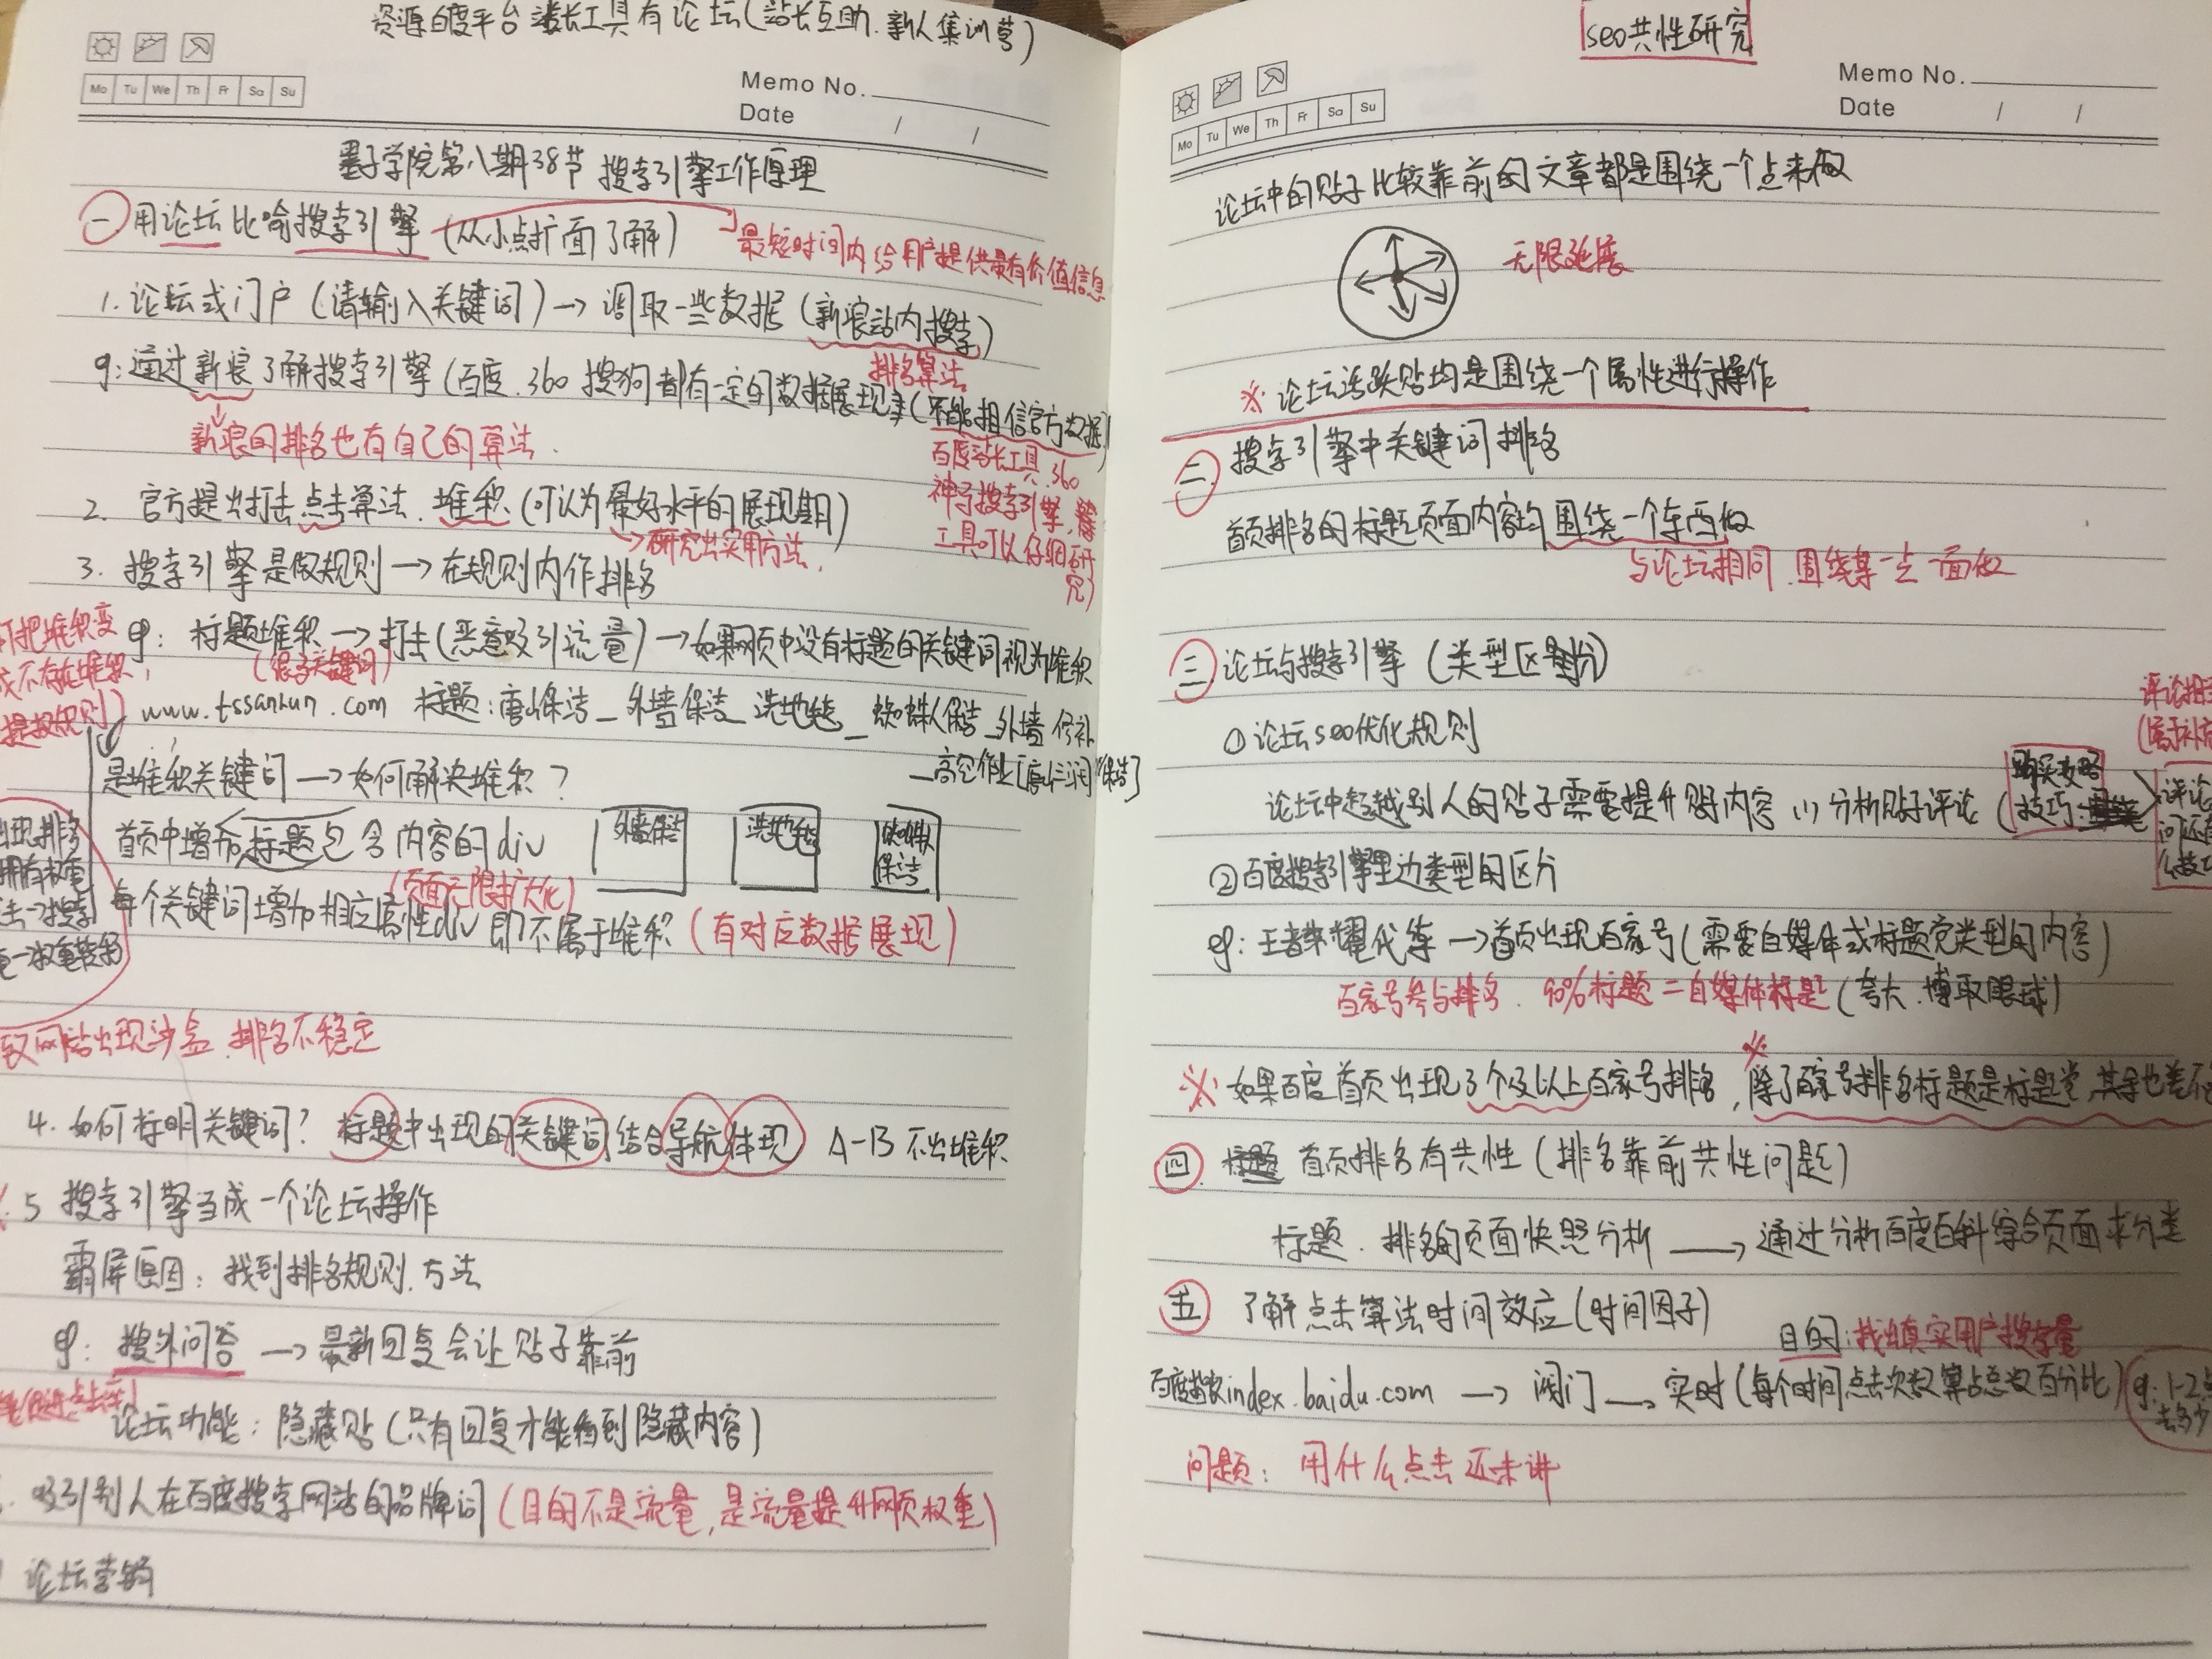 资源百度平台 站长工具有论坛(站长互助.新人集训营)
Mo Tu We Th Fr Sa Su
Memo No.
Date / /
墨子学院第八期38节 搜索引擎工作原理
一 用论坛比喻搜索引擎 (从小点扩面了解)
最短时间内给用户提供最有价值信息
1. 论坛或门户(请输入关键词) → 调取一些数据(新浪站内搜索)
排名算法
eg: 通过新浪了解搜索引擎(百度.360 搜狗都有一定的数据展现 (不能相信官方数据)
新浪的排名也有自己的算法.
百度站长工具.360
神马搜索引擎,
工具可以仔细研
究)
2. 官方提出打击点击算法.堆积(可以为最好水平的展现期)
→研究出实用方法,
3. 搜索引擎是做规则 → 在规则内作排名
可把堆积变
成不存在堆积,
eg: 标题堆积 → 打击(恶意吸引流量) → 如果网页中没有标题的关键词视为堆积
(很多关键词)
www.tssanrun.com 标题:唐山保洁_外墙保洁_洗地毯_蜘蛛人保洁_外墙修补
_高空作业[唐山三润保洁]
是堆积关键词 → 如何解决堆积?
首页中增加标题包含内容的div
外墙保洁
洗地毯
蜘蛛人保洁
(页面无限扩大化)
每个关键词增加相应属性div 即不属于堆积(有对应数据展现)
出现排名
拥有权重
网站出现沙盒.排名不稳定
4. 如何标明关键词? 标题中出现的关键词结合导航体现 A-B 不出堆积
5 搜索引擎当成一个论坛操作
霸屏原因:找到排名规则.方法
eg: 搜外问答 → 最新回复会让贴子靠前
论坛功能:隐藏贴(只有回复才能看到隐藏内容)
吸引别人在百度搜索网站的品牌词(目的不是流量,是流量提升网页权重)
论坛营销
seo共性研究
Mo Tu We Th Fr Sa Su
Memo No.
Date / /
论坛中的贴子比较靠前的文章都是围绕一个点来做
无限延展
※ 论坛活跃贴均是围绕一个属性进行操作
二. 搜索引擎中关键词排名
首页排名的标题页面内容均围绕一个东西做
与论坛相同.围绕某一点一面做
三. 论坛与搜索引擎(类型区分)
① 论坛seo优化规则
论坛中超越别人的贴子需要提升贴内容 (1) 分析贴子评论(购买攻略
技巧
②百度搜索引擎里边类型的区分
eg: 王者荣耀代练 → 首页出现百家号(需要自媒体或标题党类型的内容)
百家号参与排名. 90%标题=自媒体标题(夸大.博取眼球)
※ 如果百度首页出现3个及以上百家号排名,除了百家号排名标题是标题党,其异也差不
四. 首页排名有共性(排名靠前共性问题)
标题.排名的页面快照分析 → 通过分析百度百科综合页面来分类
五. 了解点击算法时间效应(时间因子)
目的:找出真实用户搜索量
百度指数index.baidu.com → 阀门 → 实时(每个时间点击次数算占总数百分比)
问题: 用什么点击还未讲